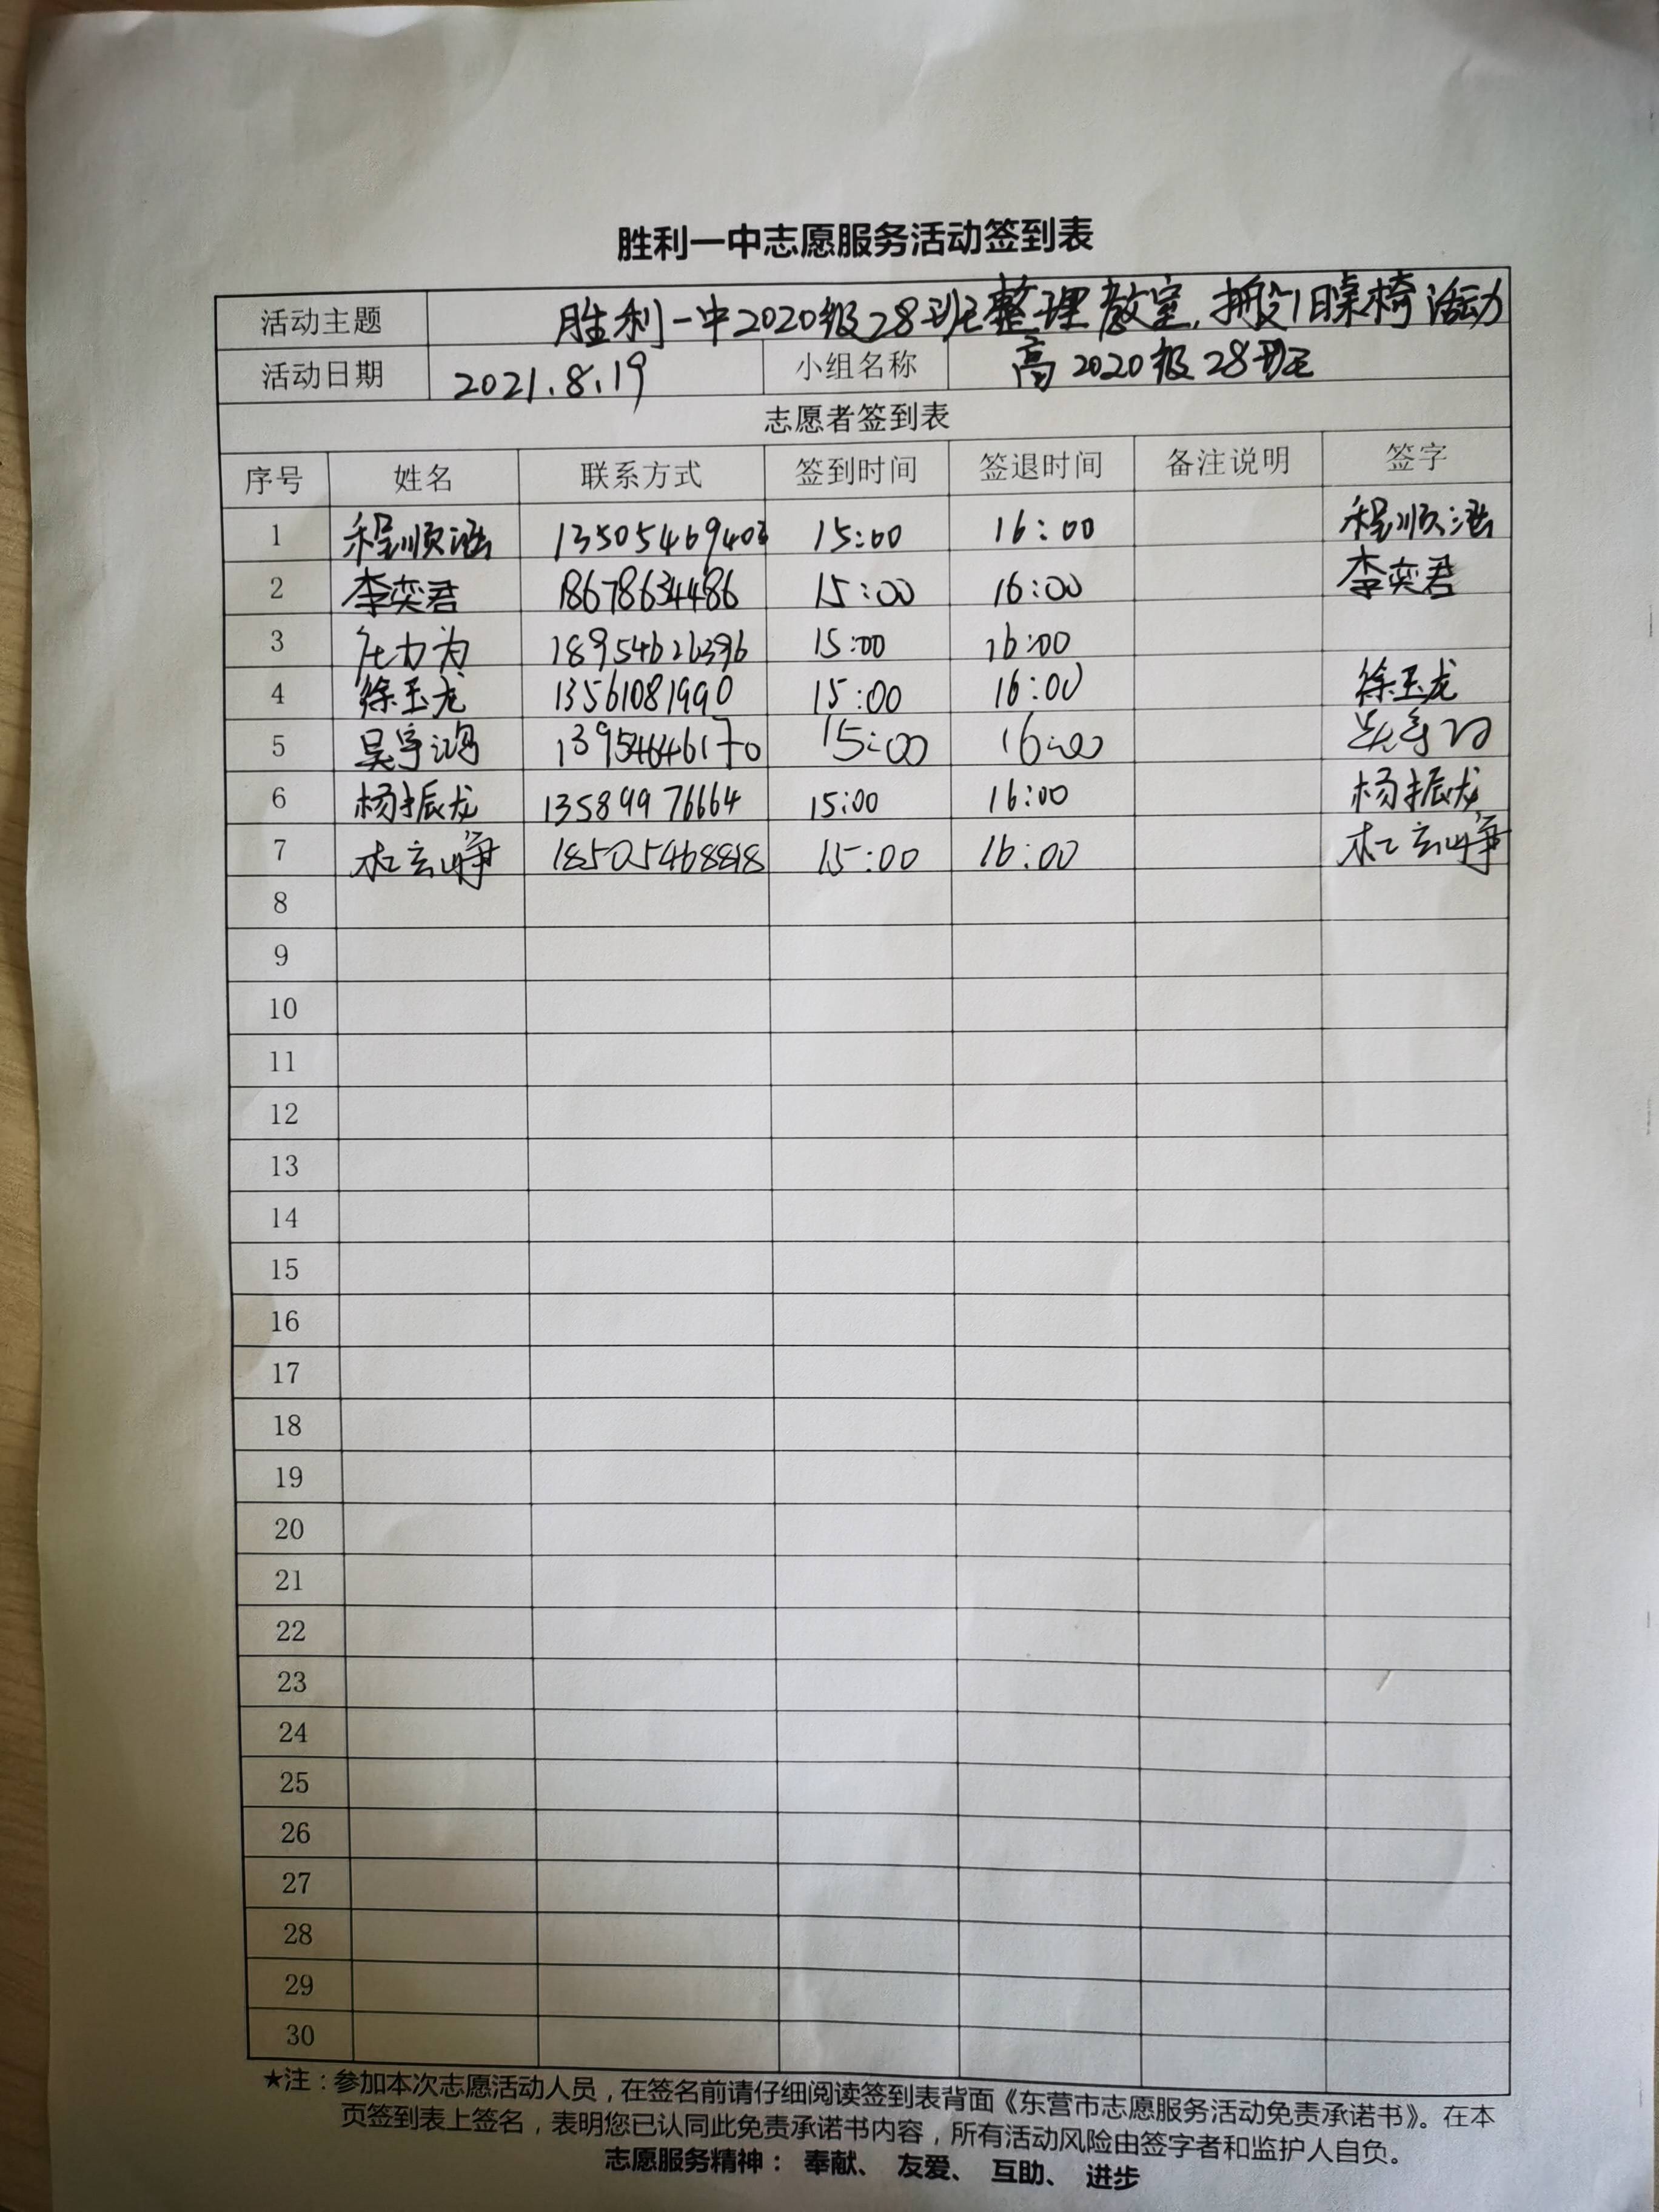 胜利一中志愿服务活动签到表
活动主题 胜利一中2020级28班整理教室,搬旧桌椅活动
活动日期 2021.8.19 小组名称 高2020级28班
志愿者签到表
序号 姓名 联系方式 签到时间 签退时间 备注说明 签字
1 程顺涵 13505469403 15:00 16:00 程顺涵
2 李奕君 18678634486 15:00 16:00 李奕君
3 力为 18954626396 15:00 16:00
4 徐玉龙 13561081990 15:00 16:00 徐玉龙
5 吴宇鸿 13954646170 15:00 16:00
6 杨振龙 13589976664 15:00 16:00 杨振龙
7 玄峥 18505468818 15:00 16:00 玄峥
8
9
10
11
12
13
14
15
16
17
18
19
20
21
22
23
24
25
26
27
28
29
30
★注:参加本次志愿活动人员,在签名前请仔细阅读签到表背面《东营市志愿服务活动免责承诺书》。在本
页签到表上签名,表明您已认同此免责承诺书内容,所有活动风险由签字者和监护人自负。
志愿服务精神: 奉献、 友爱、 互助、 进步